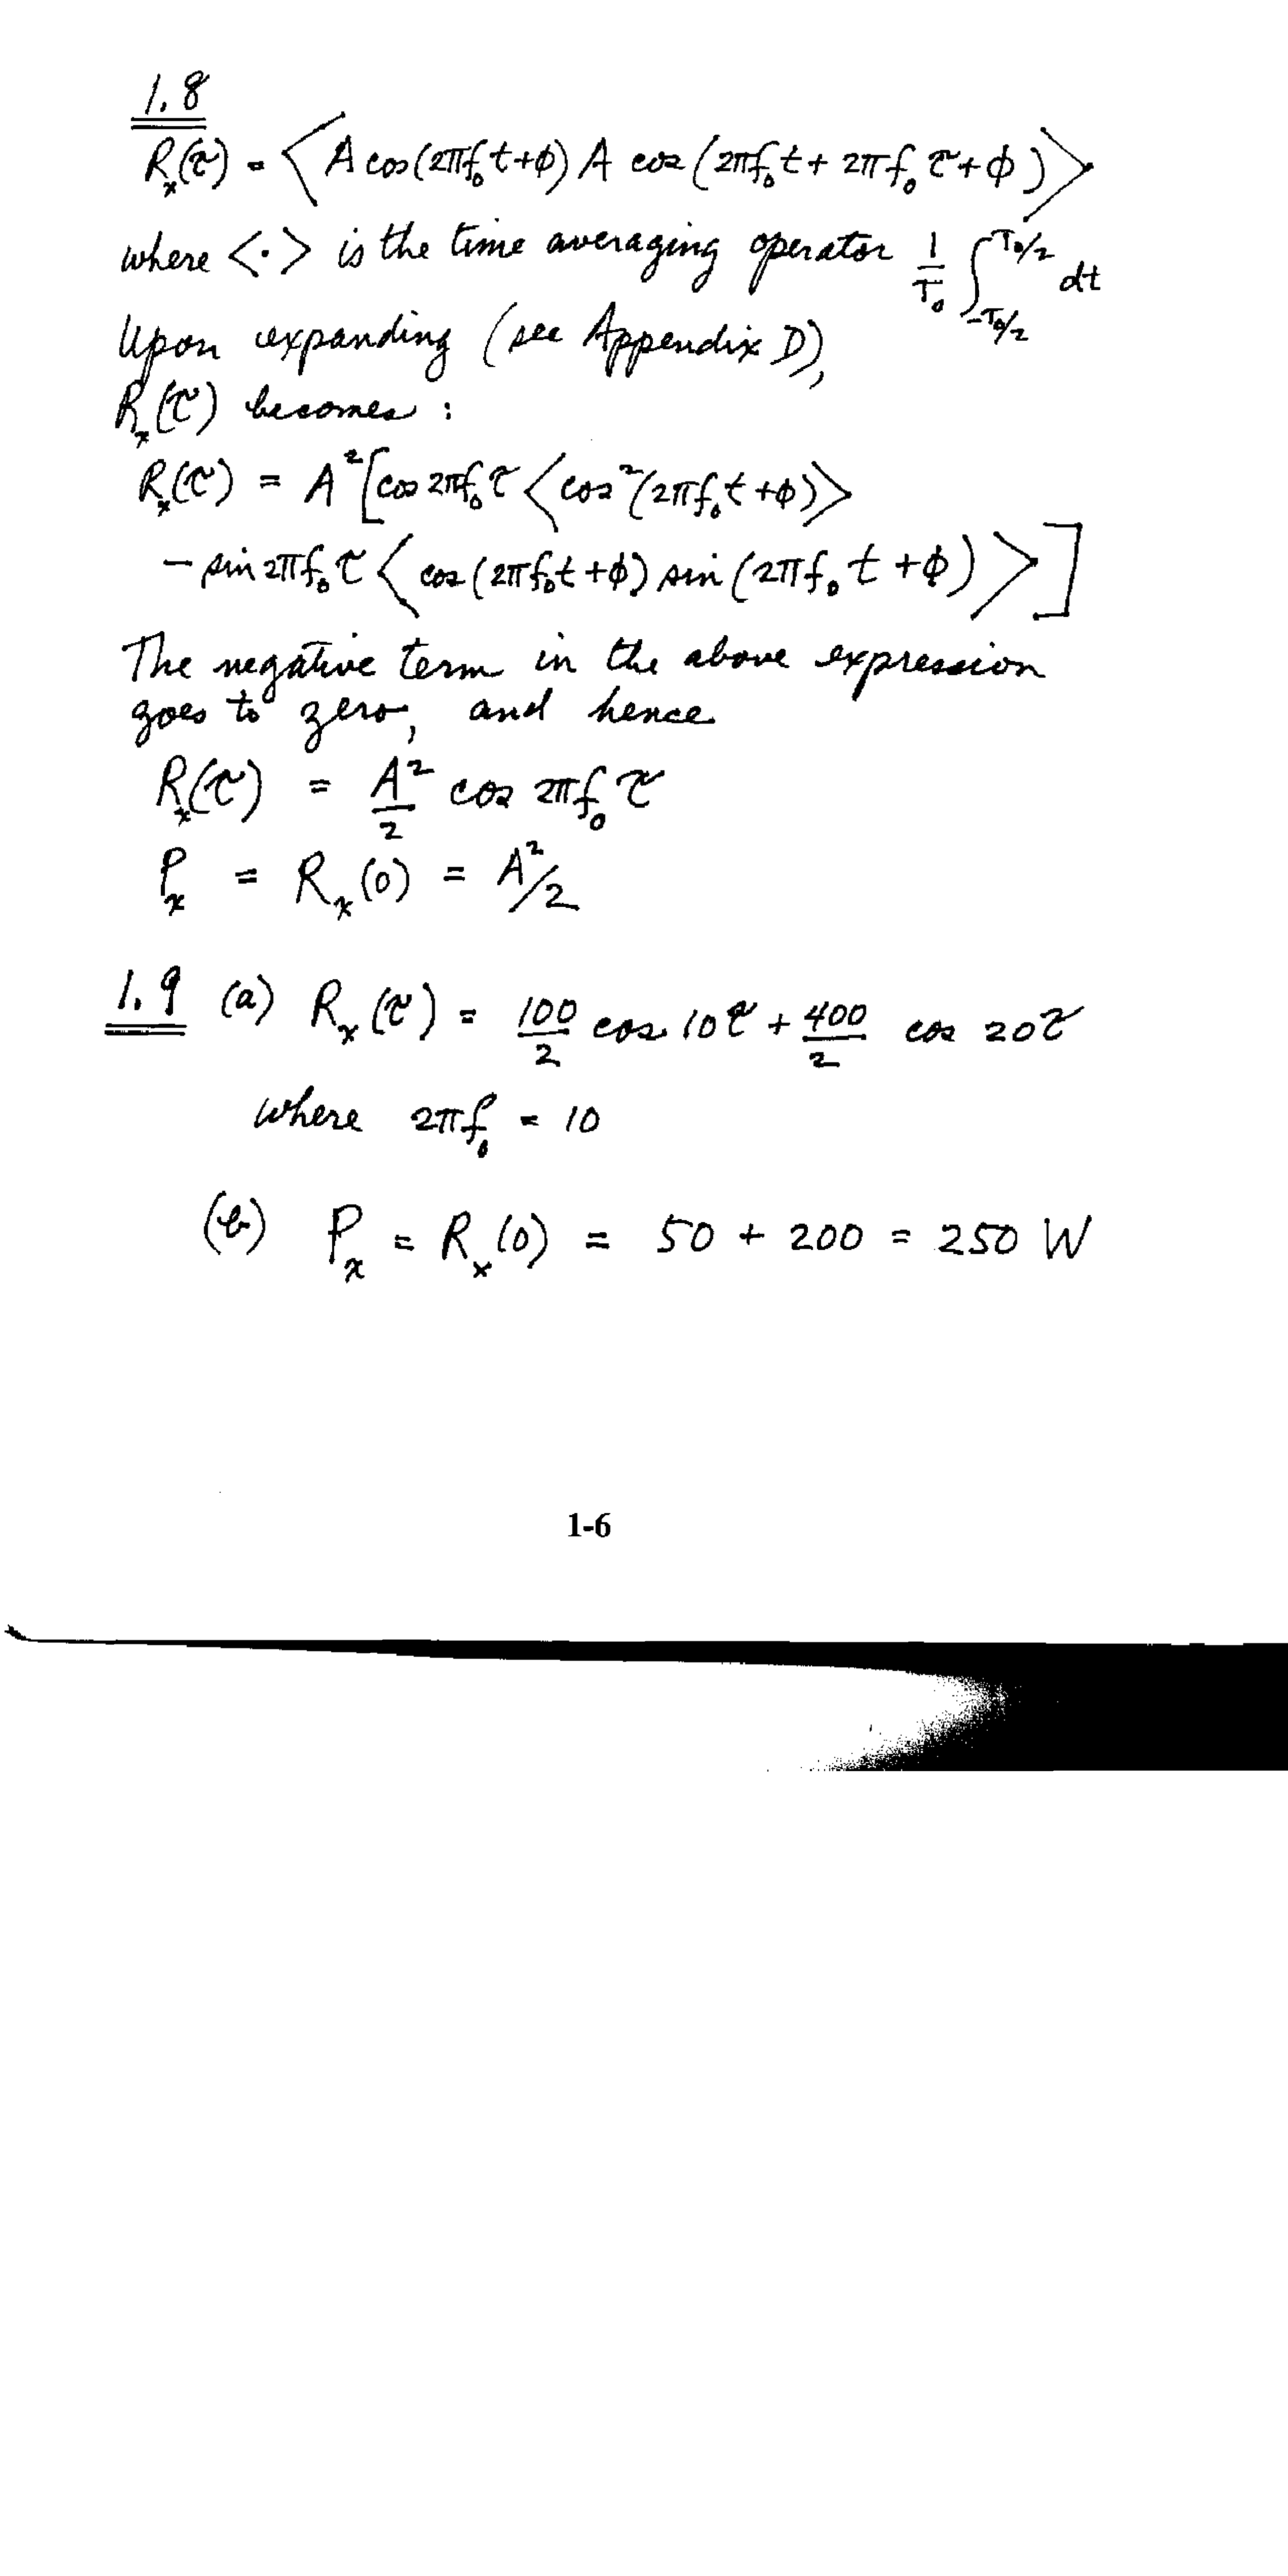 1.8
Rₓ(τ) = < A cos(2πf₀t+ϕ) A cos(2πf₀t + 2πf₀τ+ϕ) >
where <·> is the time averaging operator 1/T₀ ∫_{-T₀/2}^{T₀/2} dt
Upon expanding (see Appendix D),
Rₓ(τ) becomes :
Rₓ(τ) = A² [cos 2πf₀τ < cos²(2πf₀t +ϕ) >
- sin 2πf₀τ < cos (2πf₀t +ϕ) sin (2πf₀t +ϕ) > ]
The negative term in the above expression
goes to zero, and hence
Rₓ(τ) = A²/2 cos 2πf₀τ
Pₓ = Rₓ(0) = A²/2
1.9 (a) Rₓ(τ) = 100/2 cos 10τ + 400/2 cos 20τ
where 2πf₀ = 10
(b) Pₓ = Rₓ(0) = 50 + 200 = 250 W
1-6